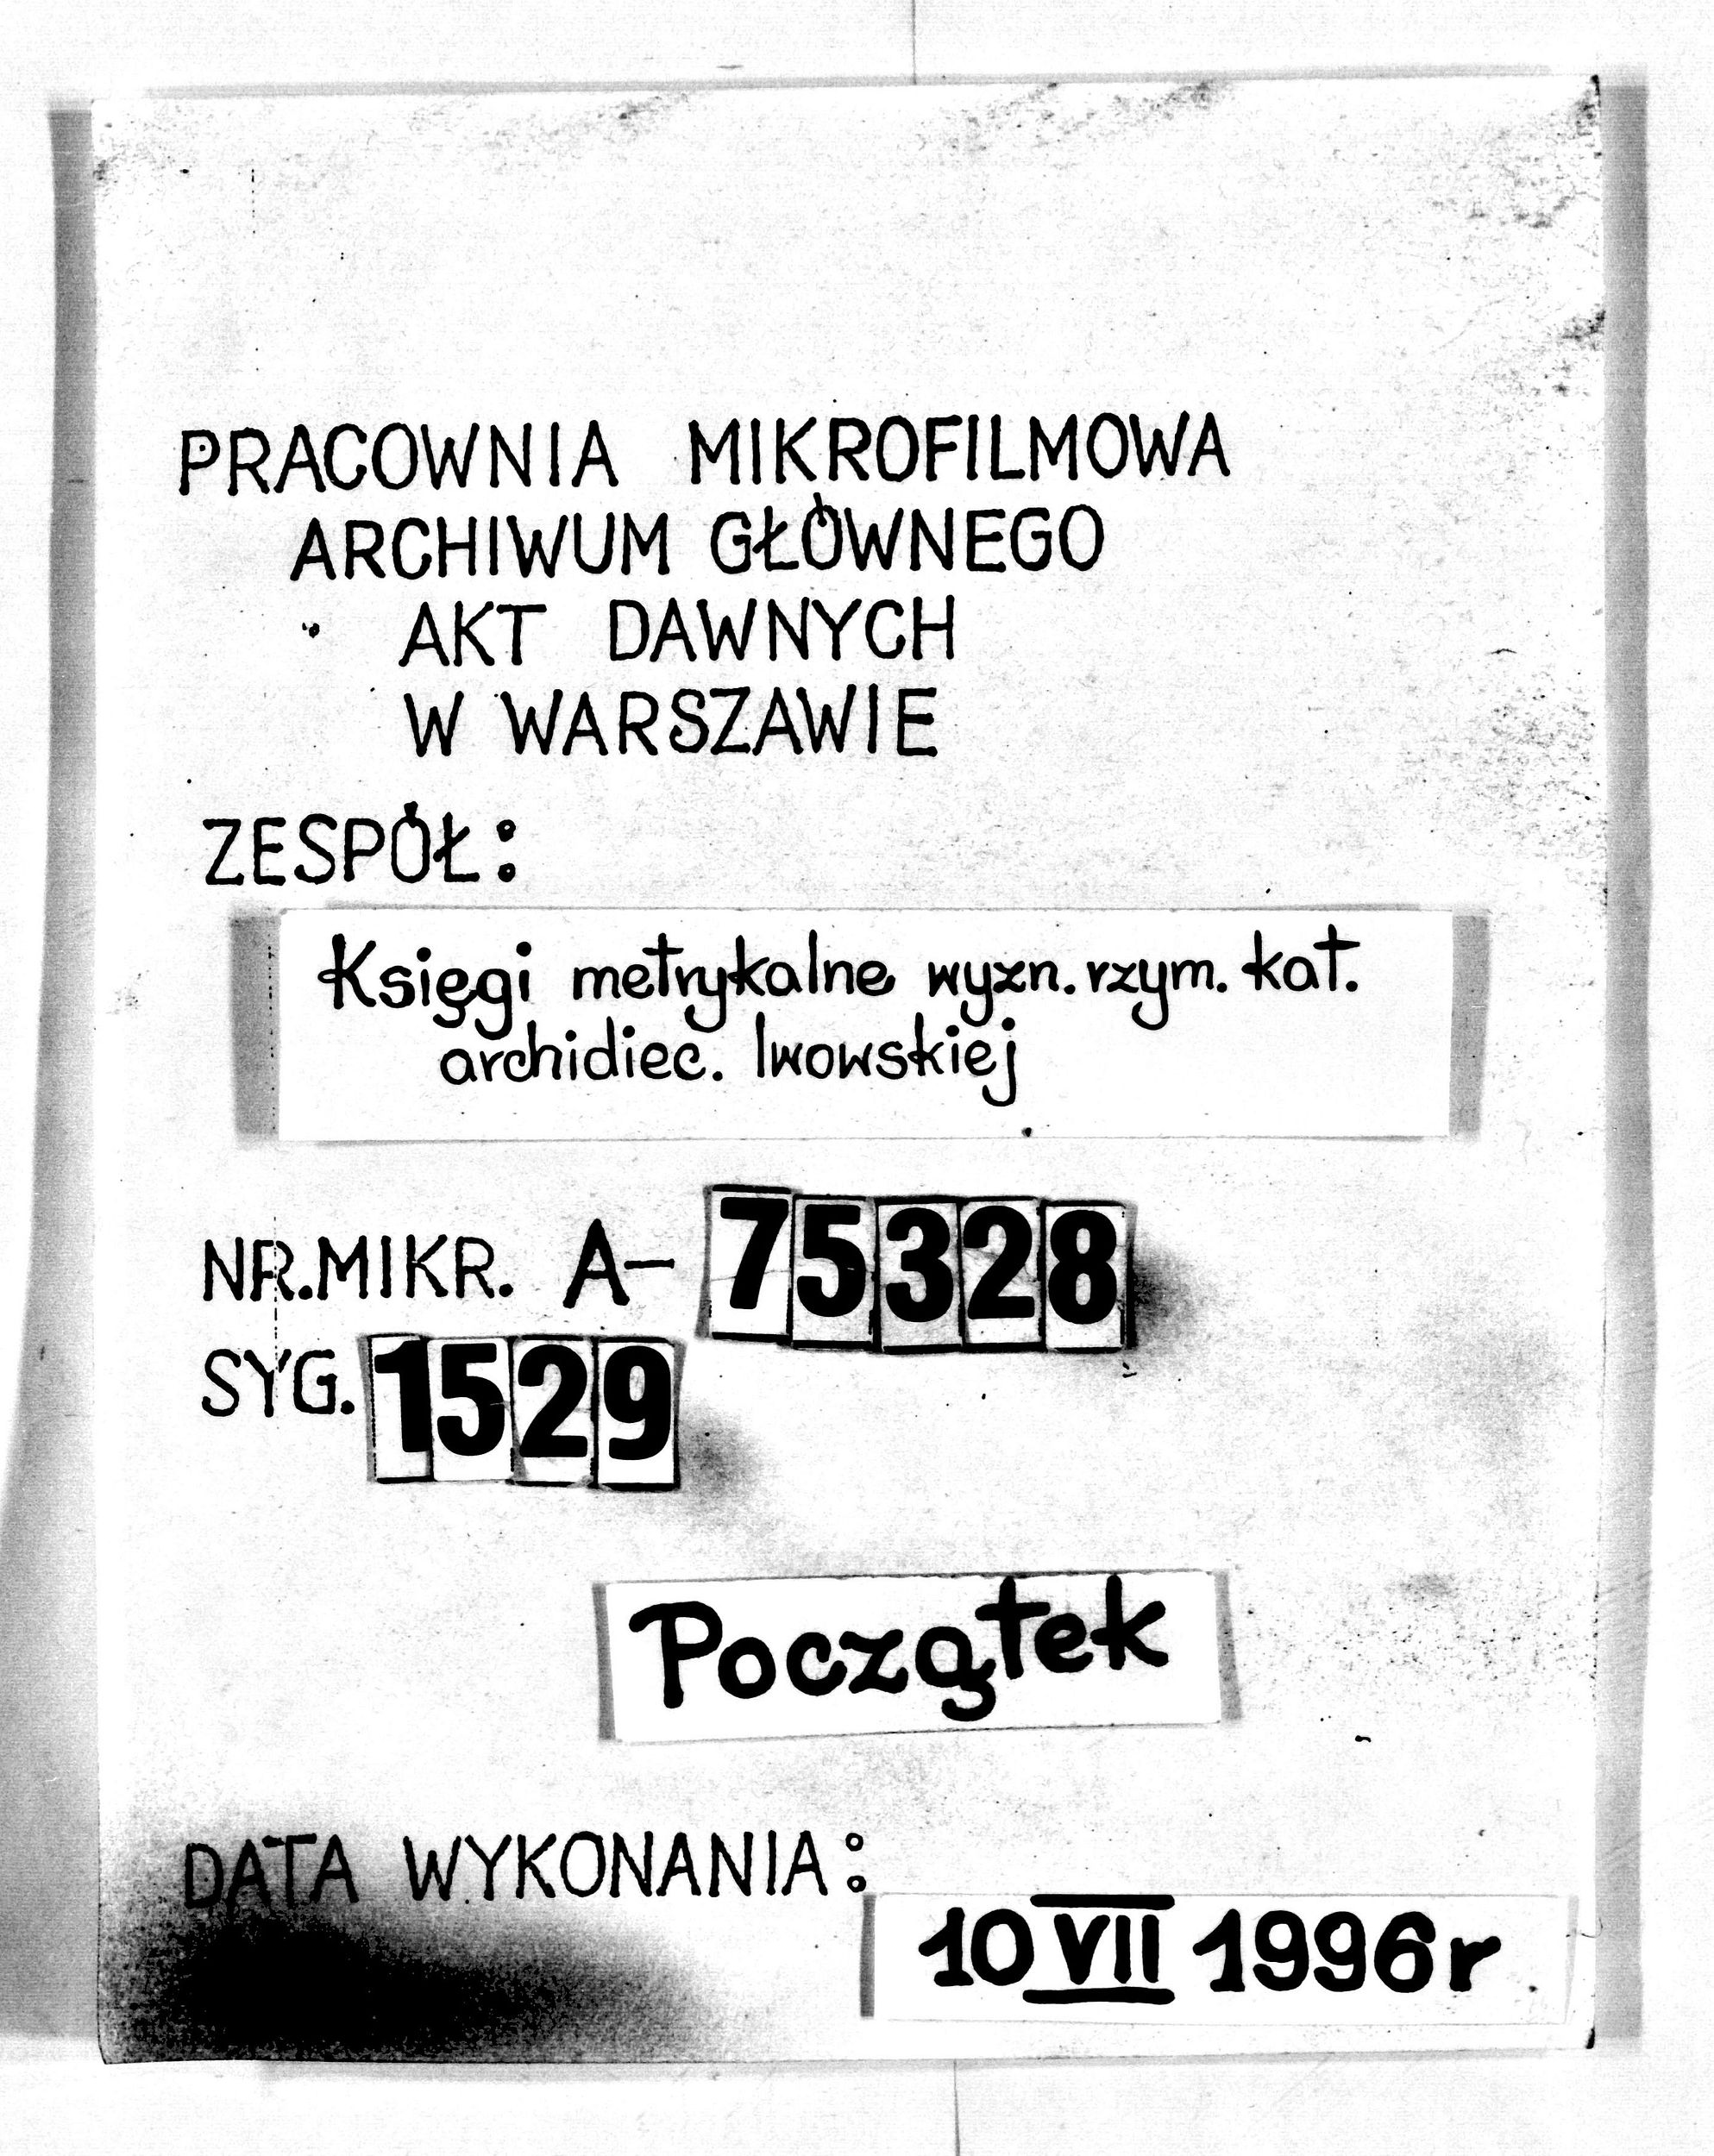 PRACOWNIA MIKROFILMOWA
ARCHIWUM GŁÓWNEGO
AKT DAWNYCH
W WARSZAWIE
ZESPÓŁ:
Księgi metrykalne wyzn. rzym. kat.
archidiec. lwowskiej
NR.MIKR. A- 75328
SYG. 1529
Początek
DATA WYKONANIA:
10 VII 1996 r